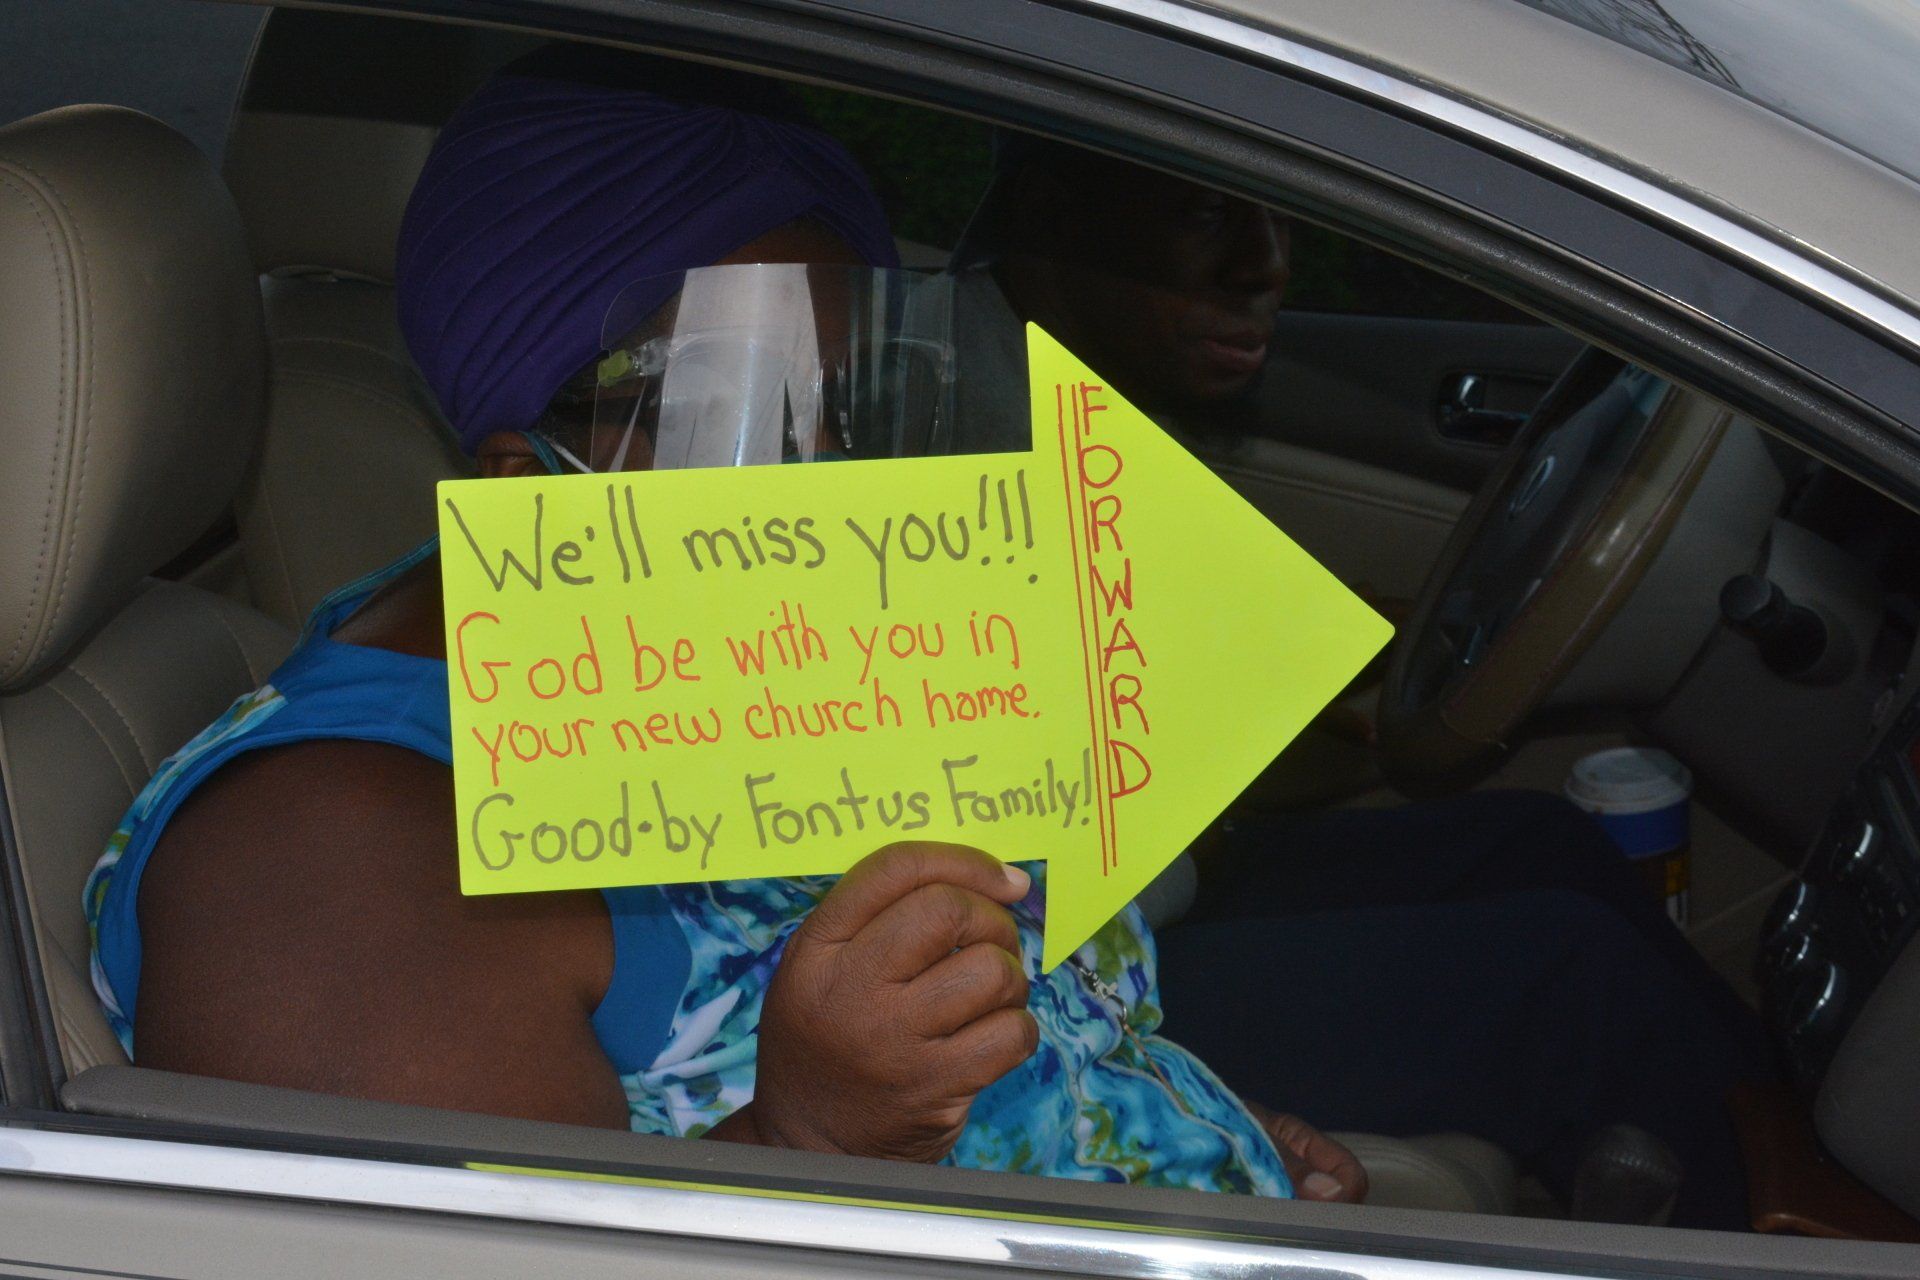 We'll miss you!!!
God be with you in
your new church home.
Good-by Fontus Family!
FORWARD